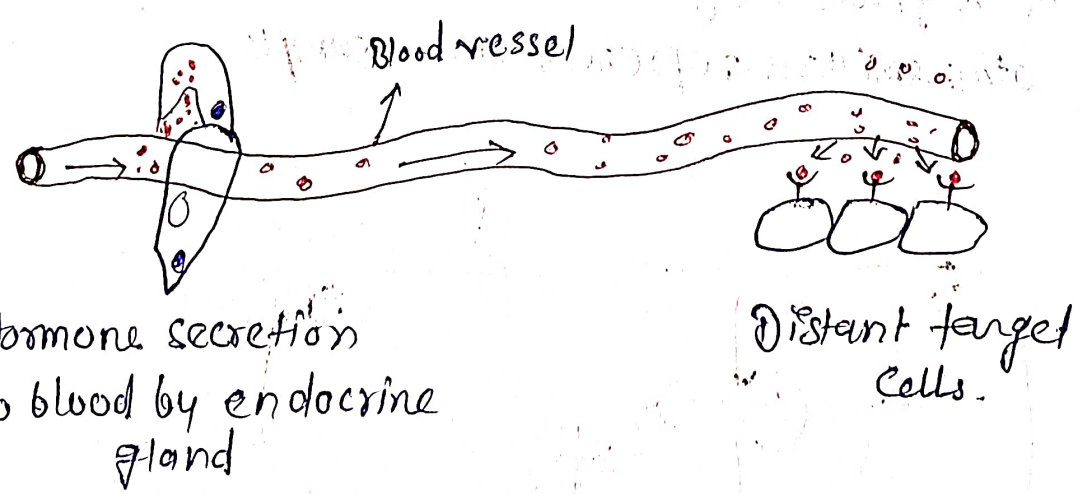 Blood vessel
ormone secretion
o blood by endocrine
gland
Distant target
Cells.